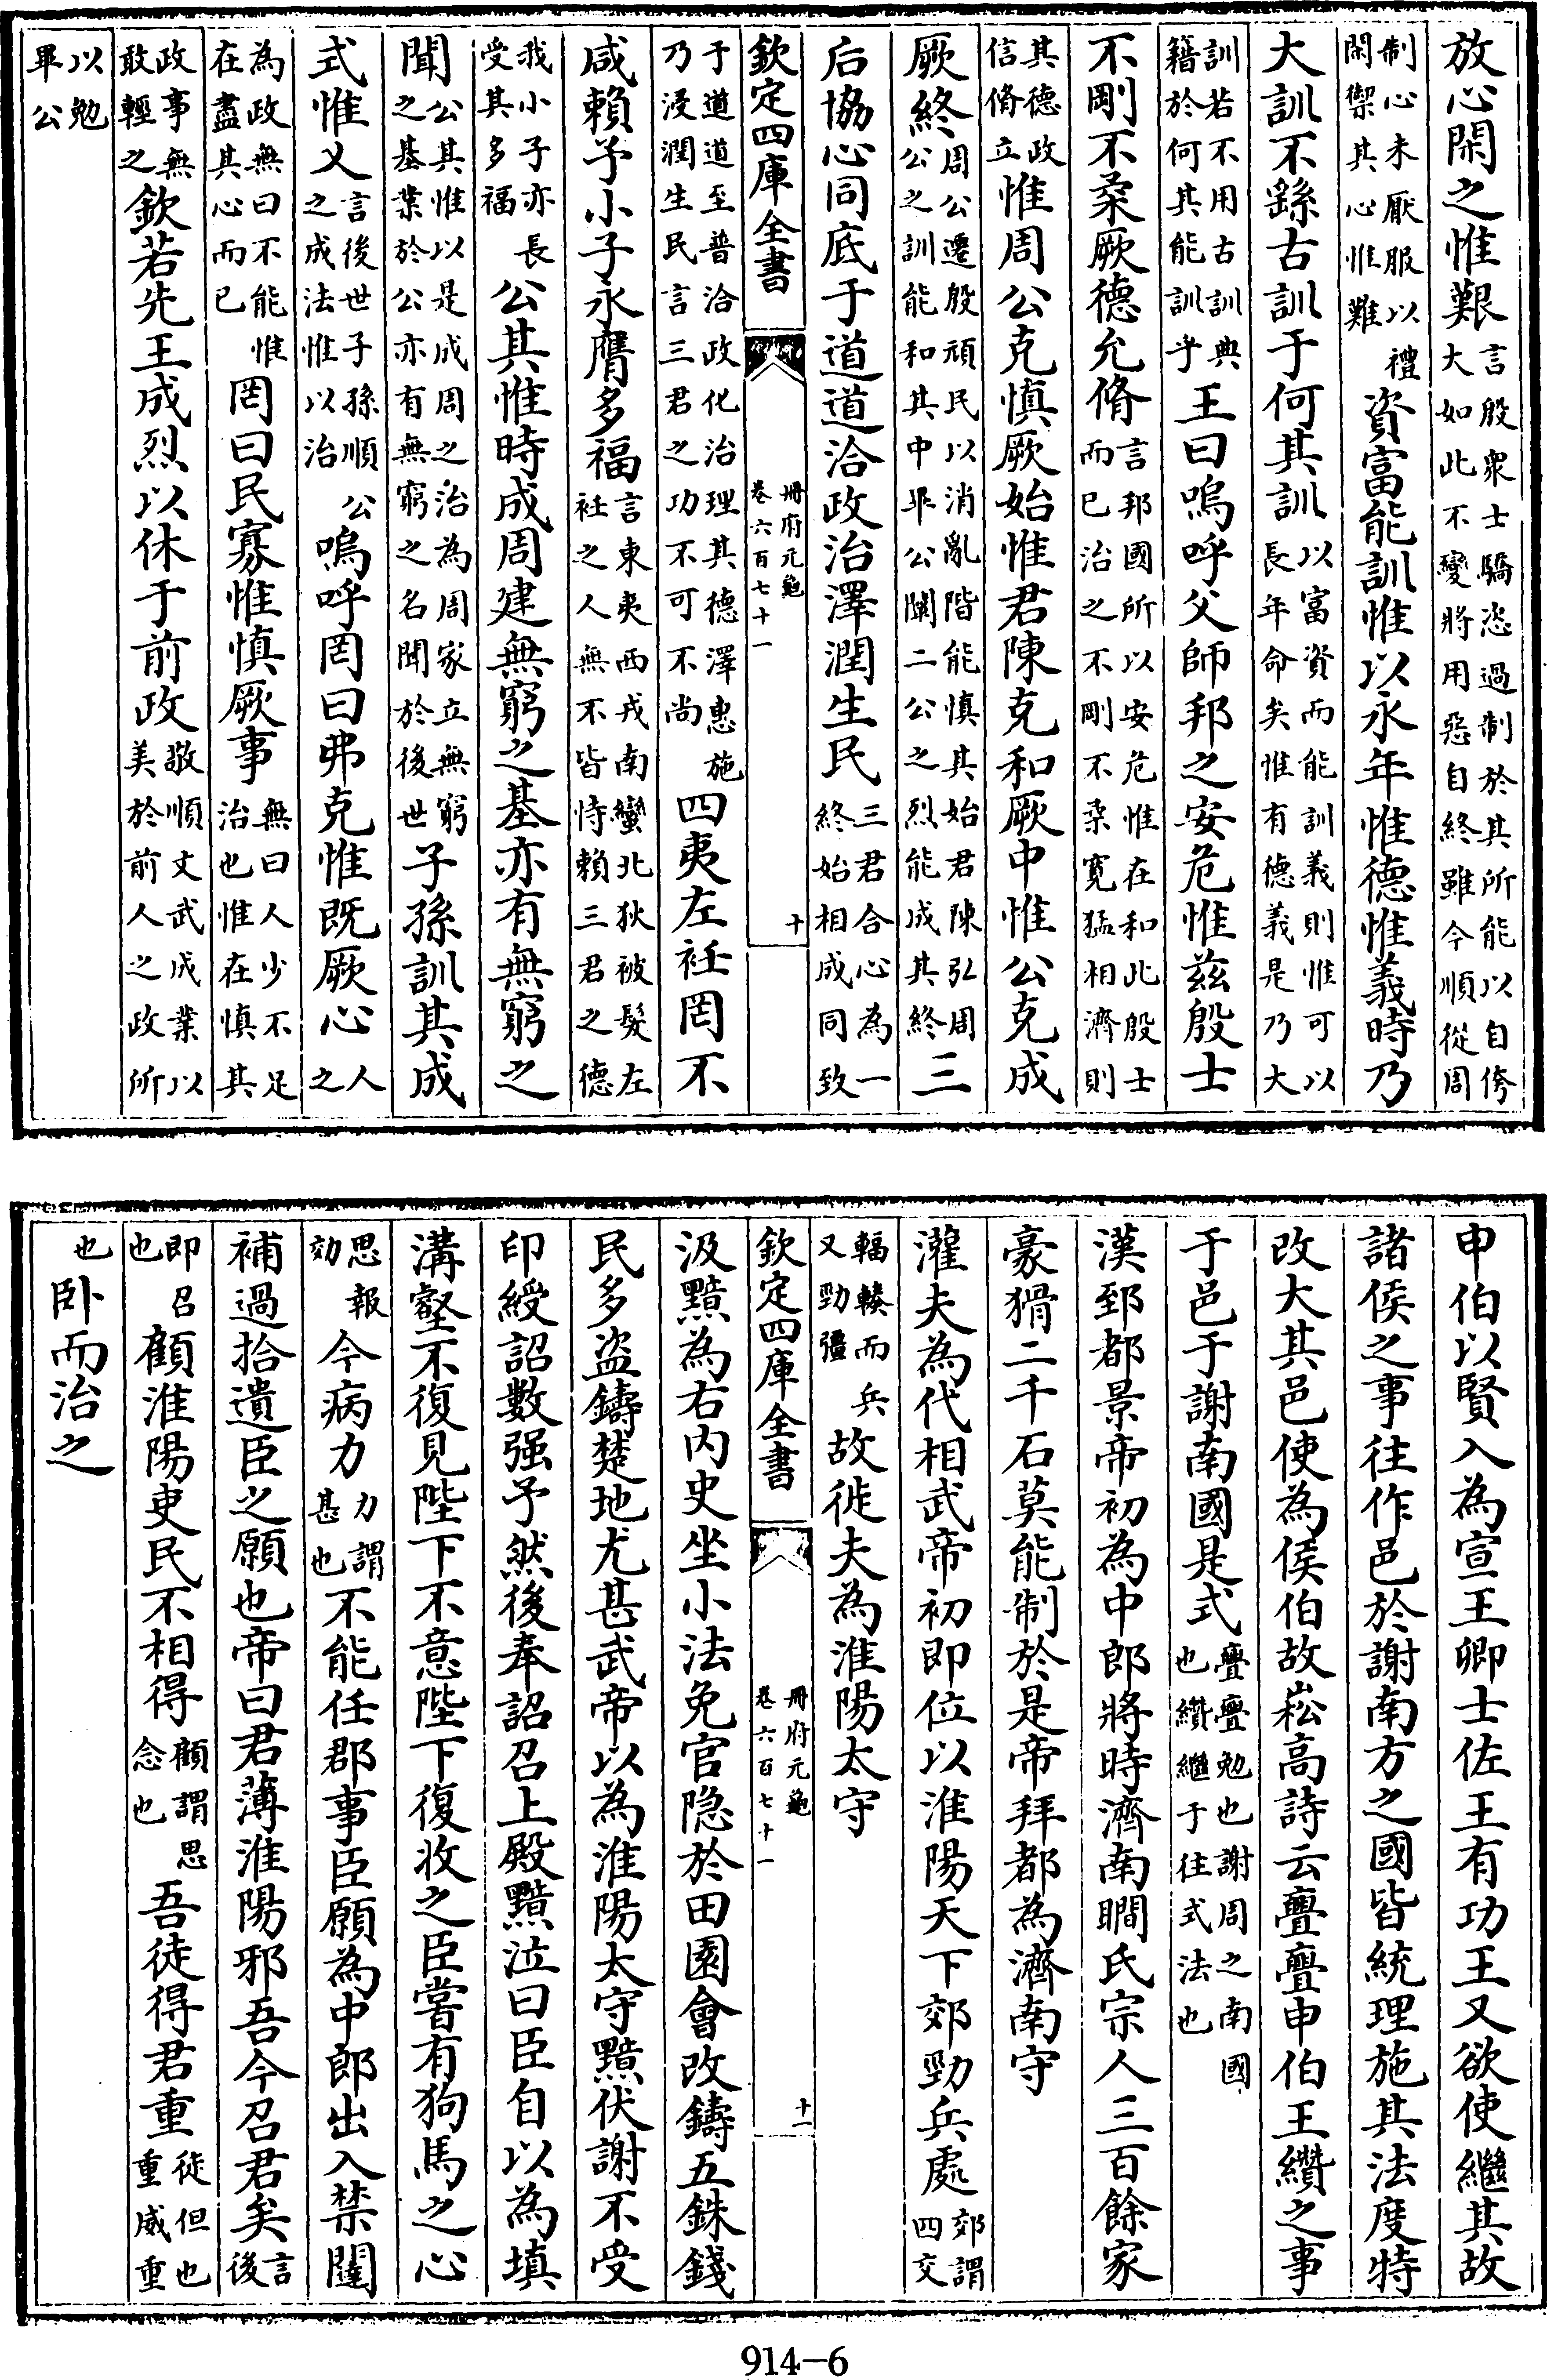 放心閑之惟艱言殷衆士驕恣過制於其所能以自侉大如此不變將用惡自終雖今順從周
制心未厭服以禮閑禦其心惟難資富能訓惟以永年惟德惟義時乃
大訓不繇古訓于何其訓以富資而能訓義則惟可以長年命矣惟有德義是乃大
訓若不用古訓典籍於何其能訓乎王曰嗚呼父師邦之安危惟兹殷士
不剛不柔厥德允脩言邦國所以安危惟在和此殷士而已治之不剛不柔寛猛相濟則
其德政信脩立惟周公克慎厥始惟君陳克和厥中惟公克成
厥終周公遷殷頑民以消亂階能慎其始君陳弘周公之訓能和其中畢公闡二公之烈能成其終三
后協心同底于道道洽政治澤潤生民三君合心為一終始相成同致
欽定四庫全書 册府元龜 卷六百七十一 十
于道道至普洽政化治理其德澤惠施乃浸潤生民言三君之功不可不尚四夷左衽罔不
咸賴予小子永膺多福言東夷西戎南蠻北狄被髮左衽之人無不皆恃賴三君之德
我小子亦長受其多福公其惟時成周建無窮之基亦有無窮之
聞公其惟以是成周之治為周家立無窮之基業於公亦有無窮之名聞於後世子孫訓其成
式惟乂言後世子孫順公之成法惟以治嗚呼罔曰弗克惟既厥心人之
為政無曰不能惟在盡其心而已罔曰民寡惟慎厥事無曰人少不足治也惟在慎其
政事無敢輕之欽若先王成烈以休于前政敬順文武成業以美於前人之政所
以勉畢公
申伯以賢入為宣王卿士佐王有功王又欲使繼其故
諸侯之事往作邑於謝南方之國皆統理施其法度特
改大其邑使為侯伯故崧高詩云亹亹申伯王纘之事
于邑于謝南國是式亹亹勉也謝周之南國也纘繼于往式法也
漢郅都景帝初為中郎將時濟南瞷氏宗人三百餘家
豪猾二千石莫能制於是帝拜都為濟南守
灌夫為代相武帝初即位以淮陽天下郊勁兵處郊謂四交
輻輳而兵又勁彊故徙夫為淮陽太守
欽定四庫全書 册府元龜 卷六百七十一 十一
汲黯為右内史坐小法免官隠於田園會改鑄五銖錢
民多盜鑄楚地尤甚武帝以為淮陽太守黯伏謝不受
印綬詔數强予然後奉詔召上殿黯泣曰臣自以為填
溝壑不復見陛下不意陛下復收之臣嘗有狗馬之心
思報効今病力力謂甚也不能任郡事臣願為中郎出入禁闥
補過拾遺臣之願也帝曰君薄淮陽邪吾今召君矣言後
即召也顧淮陽吏民不相得顧謂思念也吾徒得君重徒但也重威重
也卧而治之
914-6